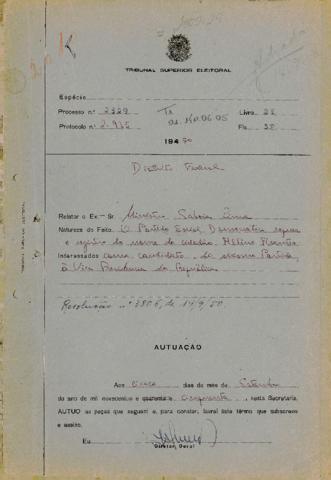 TRIBUNAL SUPERIOR ELEITORAL
Espécie
Processo n.º 2329 Livro 28
Protocolo n.º 2.935 Fls. 38
194 50
Distrito Federal
Relator o Ex. Sr. Ministro Saboia Lima
Natureza do Feito: O Partido Social Democrático requer
o registro do nome do cidadão
Interessados como candidato do mesmo Partido,
à Vice Presidencia da República.
Resolução nº 3806, de 14/9/50
AUTUAÇÃO
Aos dias do mes de Setembro
do ano de mil novecentos e quarenta e cinquenta, nesta Secretaria,
AUTUO as peças que seguem e, para constar, lavrei êste têrmo que subscrevo
e assino.
Eu
Diretor Geral